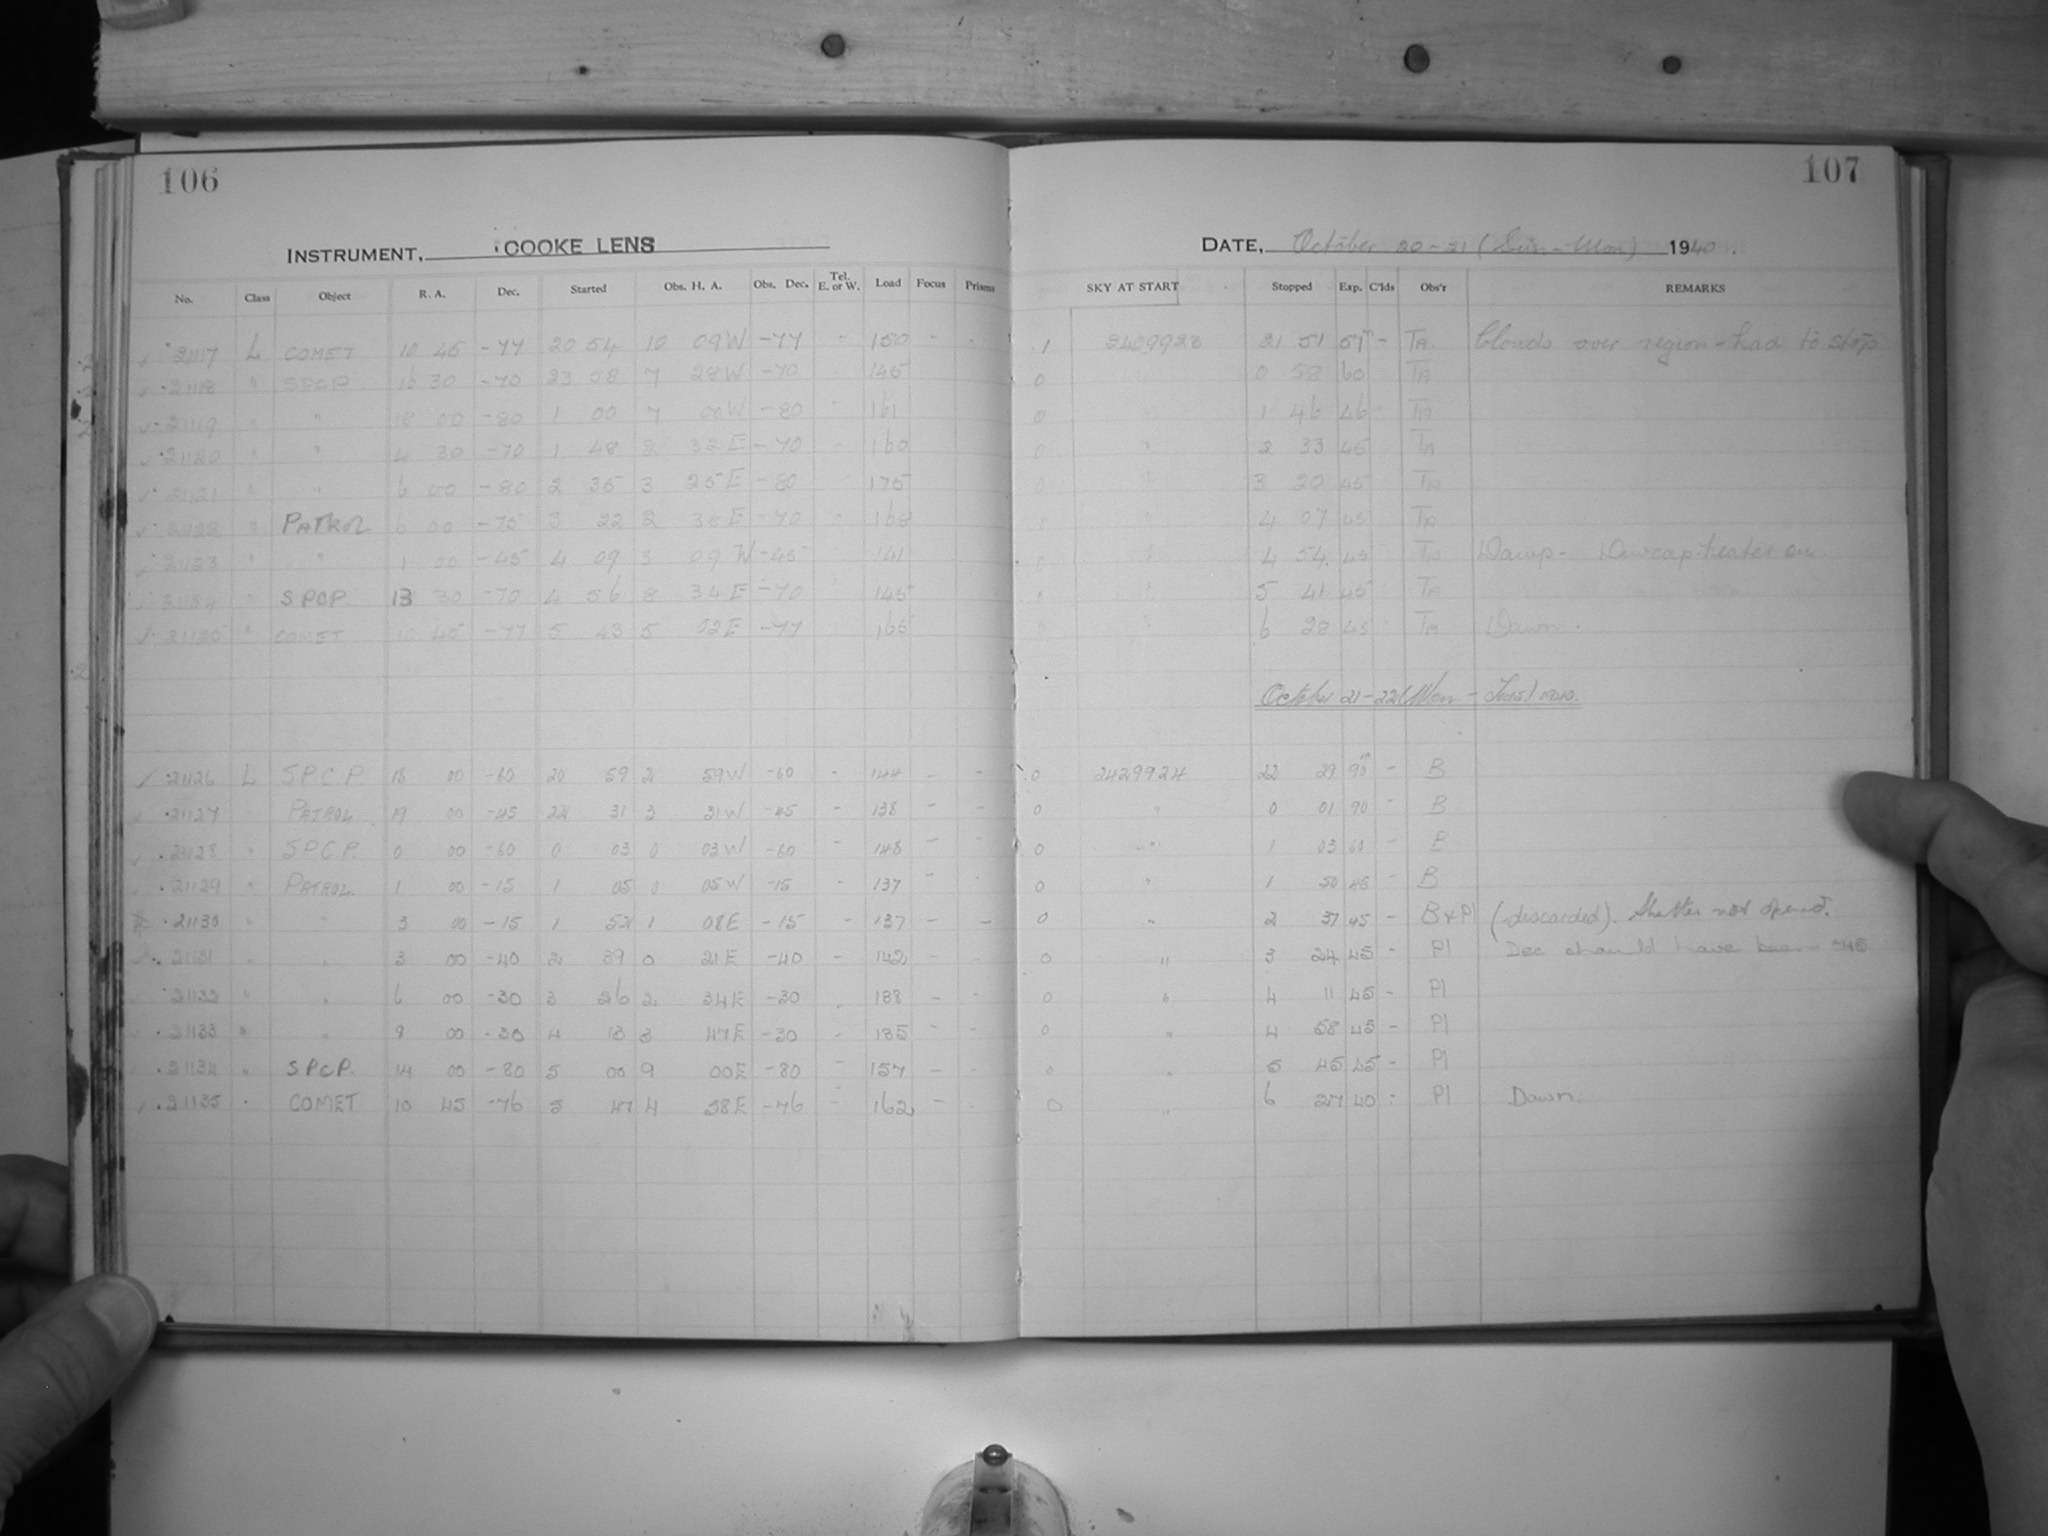 106
107
INSTRUMENT, COOKE LENS
DATE, October 20-21 (Sun-Mon) 1940.
No. Class Object R. A. Dec. Started Obs. H. A. Obs. Dec. Tel. E. or W. Load Focus Prisms SKY AT START Stopped Exp. C'lds Obs'r REMARKS
21117 L COMET 10 45 -77 20 54 10 09W -77 - 150 - - 1 2429923 21 51 57m - TA. Clouds over region - had to stop
21118 " SPCP 16 30 -70 23 58 7 28W -70 145 0 0 58 60 TA
21119 " " 18 00 -80 1 00 7 00W -80 161 0 1 46 46 TA
21120 " " 4 30 -70 1 48 2 32E -70 160 0 " 2 33 45 TA
21121 " " 6 00 -80 2 35 3 25E -80 175 0 " 3 20 45 TA
21122 " PATROL 6 00 -75 3 22 2 38E -70 168 " 4 07 45 TA
21123 " " 1 00 -45 4 09 3 09W -45 141 " 4 54 45 TA Damp - Dewcap heater on
21124 " SPCP 13 30 -70 4 56 8 34E -70 145 " 5 41 45 TA
21125 " COMET 10 45 -77 5 43 5 02E -77 165 " 6 28 45 TA Dawn.
October 21-22 (Mon - Tues) 1940.
21126 L S.P.C.P. 18 00 -60 20 59 2 59W -60 - 144 - - 0 2429924 22 29 90m - B
21127 PATROL 19 00 -45 22 31 3 31W -45 - 138 - - 0 " 0 01 90 - B
21128 " S.P.C.P. 0 00 -60 0 03 0 03W -60 - 148 - - 0 " 1 03 60 - B
21129 " PATROL 1 00 -15 1 05 0 05W -15 - 137 - - 0 " 1 50 45 - B
21130 " " 3 00 -15 1 52 1 08E -15 - 137 - - 0 " 2 37 45 - B & Pl (discarded). Shutter not opened.
21131 " " 3 00 -40 2 39 0 21E -40 - 142 0 " 3 24 45 - Pl Dec should have been -45
21132 " " 6 00 -30 3 26 2 34E -30 138 - - 0 " 4 11 45 - Pl
21133 " " 8 00 -30 4 13 3 47E -30 - 135 - - 0 " 4 58 45 - Pl
21134 " SPCP. 14 00 -80 5 00 9 00E -80 - 157 - - 0 " 5 45 45 - Pl
21135 - COMET 10 45 -76 5 47 4 58E -76 - 162 - - 0 " 6 27 40 - Pl Dawn.